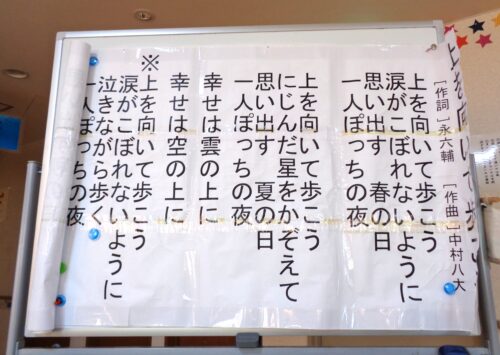 上を向いて歩こう
[作詞]永六輔 [作曲]中村八大
上を向いて歩こう
涙がこぼれないように
思い出す 春の日
一人ぽっちの夜
上を向いて歩こう
にじんだ星をかぞえて
思い出す 夏の日
一人ぽっちの夜
幸せは雲の上に
幸せは空の上に
※
上を向いて歩こう
涙がこぼれないように
泣きながら歩く
一人ぽっちの夜